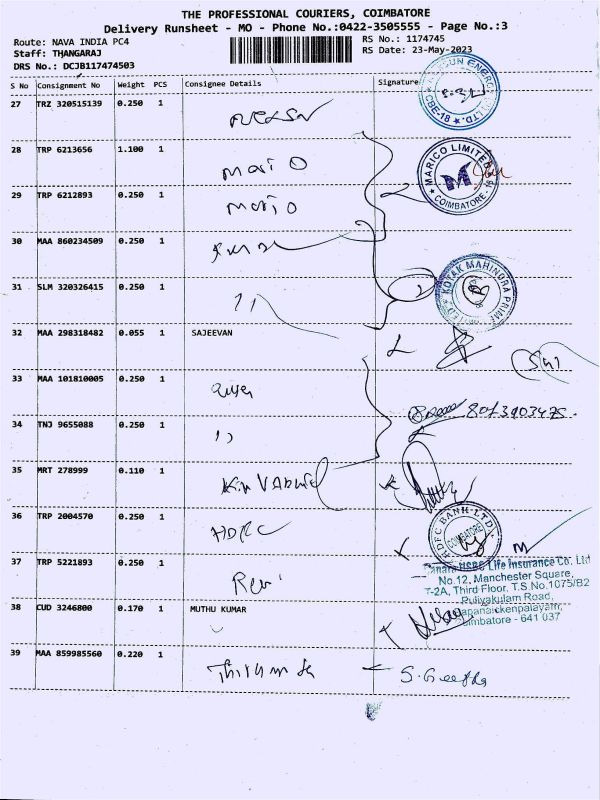 THE PROFESSIONAL COURIERS, COIMBATORE
Delivery Runsheet - MO - Phone No.:0422-3505555 - Page No.:3
Route: NAVA INDIA PC4
RS No.: 1174745
Staff: THANGARAJ
RS Date: 23-May-2023
DRS No.: DCJB117474503
S No Consignment No Weight PCS Consignee Details Signature
27 TRZ 320515139 0.250 1
CBE-18 LTD.
28 TRP 6213656 1.100 1
MARICO LIMITED
COIMBATORE
29 TRP 6212893 0.250 1
30 MAA 860234509 0.250 1
31 SLM 320326415 0.250 1 11
KOTAK MAHINDRA PRIME
32 MAA 298318482 0.055 1 SAJEEVAN
33 MAA 101810005 0.250 1
34 TNJ 9655088 0.250 1 11
35 MRT 278999 0.110 1
36 TRP 2004570 0.250 1 HDFC
HDFC BANK LTD.
COIMBATORE
37 TRP 5221893 0.250 1 Revi
HSBC Life Insurance Co. Ltd
No.12, Manchester Square,
T-2A, Third Floor, T.S.No.1075/B2
Puliyakulam Road,
Coimbatore - 641 037
38 CUD 3246800 0.170 1 MUTHU KUMAR
39 MAA 859985560 0.220 1
S. Geetha